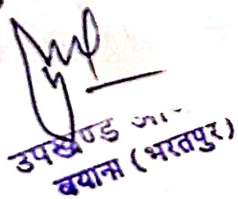 उपखण्ड
बयाना (भरतपुर)